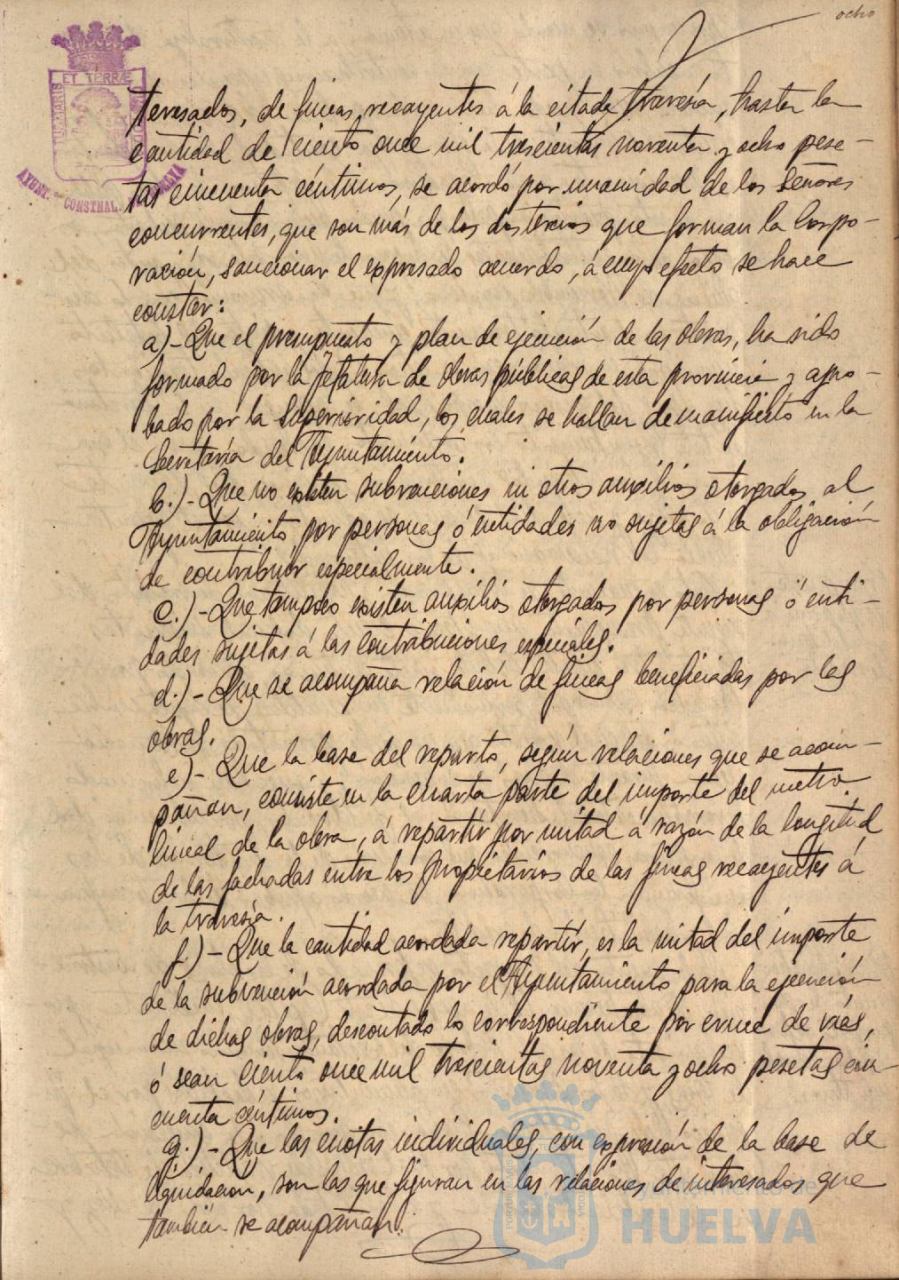 ocho
ET TERRÆ
AYUNT. CONSTNAL.
teresados, de fincas recayentes á la citada travesía, hasta la
cantidad de ciento once mil trescientas noventa y ocho pese-
tas cincuenta céntimos, se acordó por unanimidad de los Señores
concurrentes, que son más de los dos tercios que forman la Corpo-
ración, sancionar el expresado acuerdo, á cuyo efecto se hace
constar:
a)- Que el presupuesto y plan de ejecución de las obras, ha sido
formado por la Jefatura de obras públicas de esta provincia y apro-
bado por la Superioridad, los cuales se hallan de manifiesto en la
Secretaría del Ayuntamiento.
b.)- Que no existen subvenciones ni otros auxilios otorgados al
Ayuntamiento por personas ó entidades no sujetas á la obligación
de contribuir especialmente.
c.)- Que tampoco existen auxilios otorgados por personas ó enti-
dades sujetas á las contribuciones especiales.
d.)- Que se acompaña relación de fincas beneficiadas por las
obras.
e)- Que la base del reparto, según relaciones que se acom-
pañan, consiste en la cuarta parte del importe del metro
lineal de la obra, á repartir por mitad á razón de la longitud
de las fachadas entre los propietarios de las fincas recayentes á
la travesía.
f.)- Que la cantidad acordada repartir, es la mitad del importe
de la subvención acordada por el Ayuntamiento para la ejecución
de dichas obras, descontado lo correspondiente por cruce de vías,
ó sean ciento once mil trescientas noventa y ocho pesetas cin-
cuenta céntimos.
g.)- Que las cuotas individuales, con expresión de la base de
liquidación, son las que figuran en las relaciones de interesados que
también se acompañan.
HUELVA